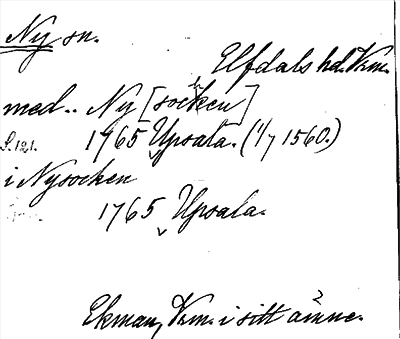 Ny sn.
Elfdals hd. Vrm.
med.. Ny [socken]
S. 121. 1765 Upsala. (1/7 1560.)
i Nysocken
1765 Upsala.
Ekman, Vrm. i sitt ämne.